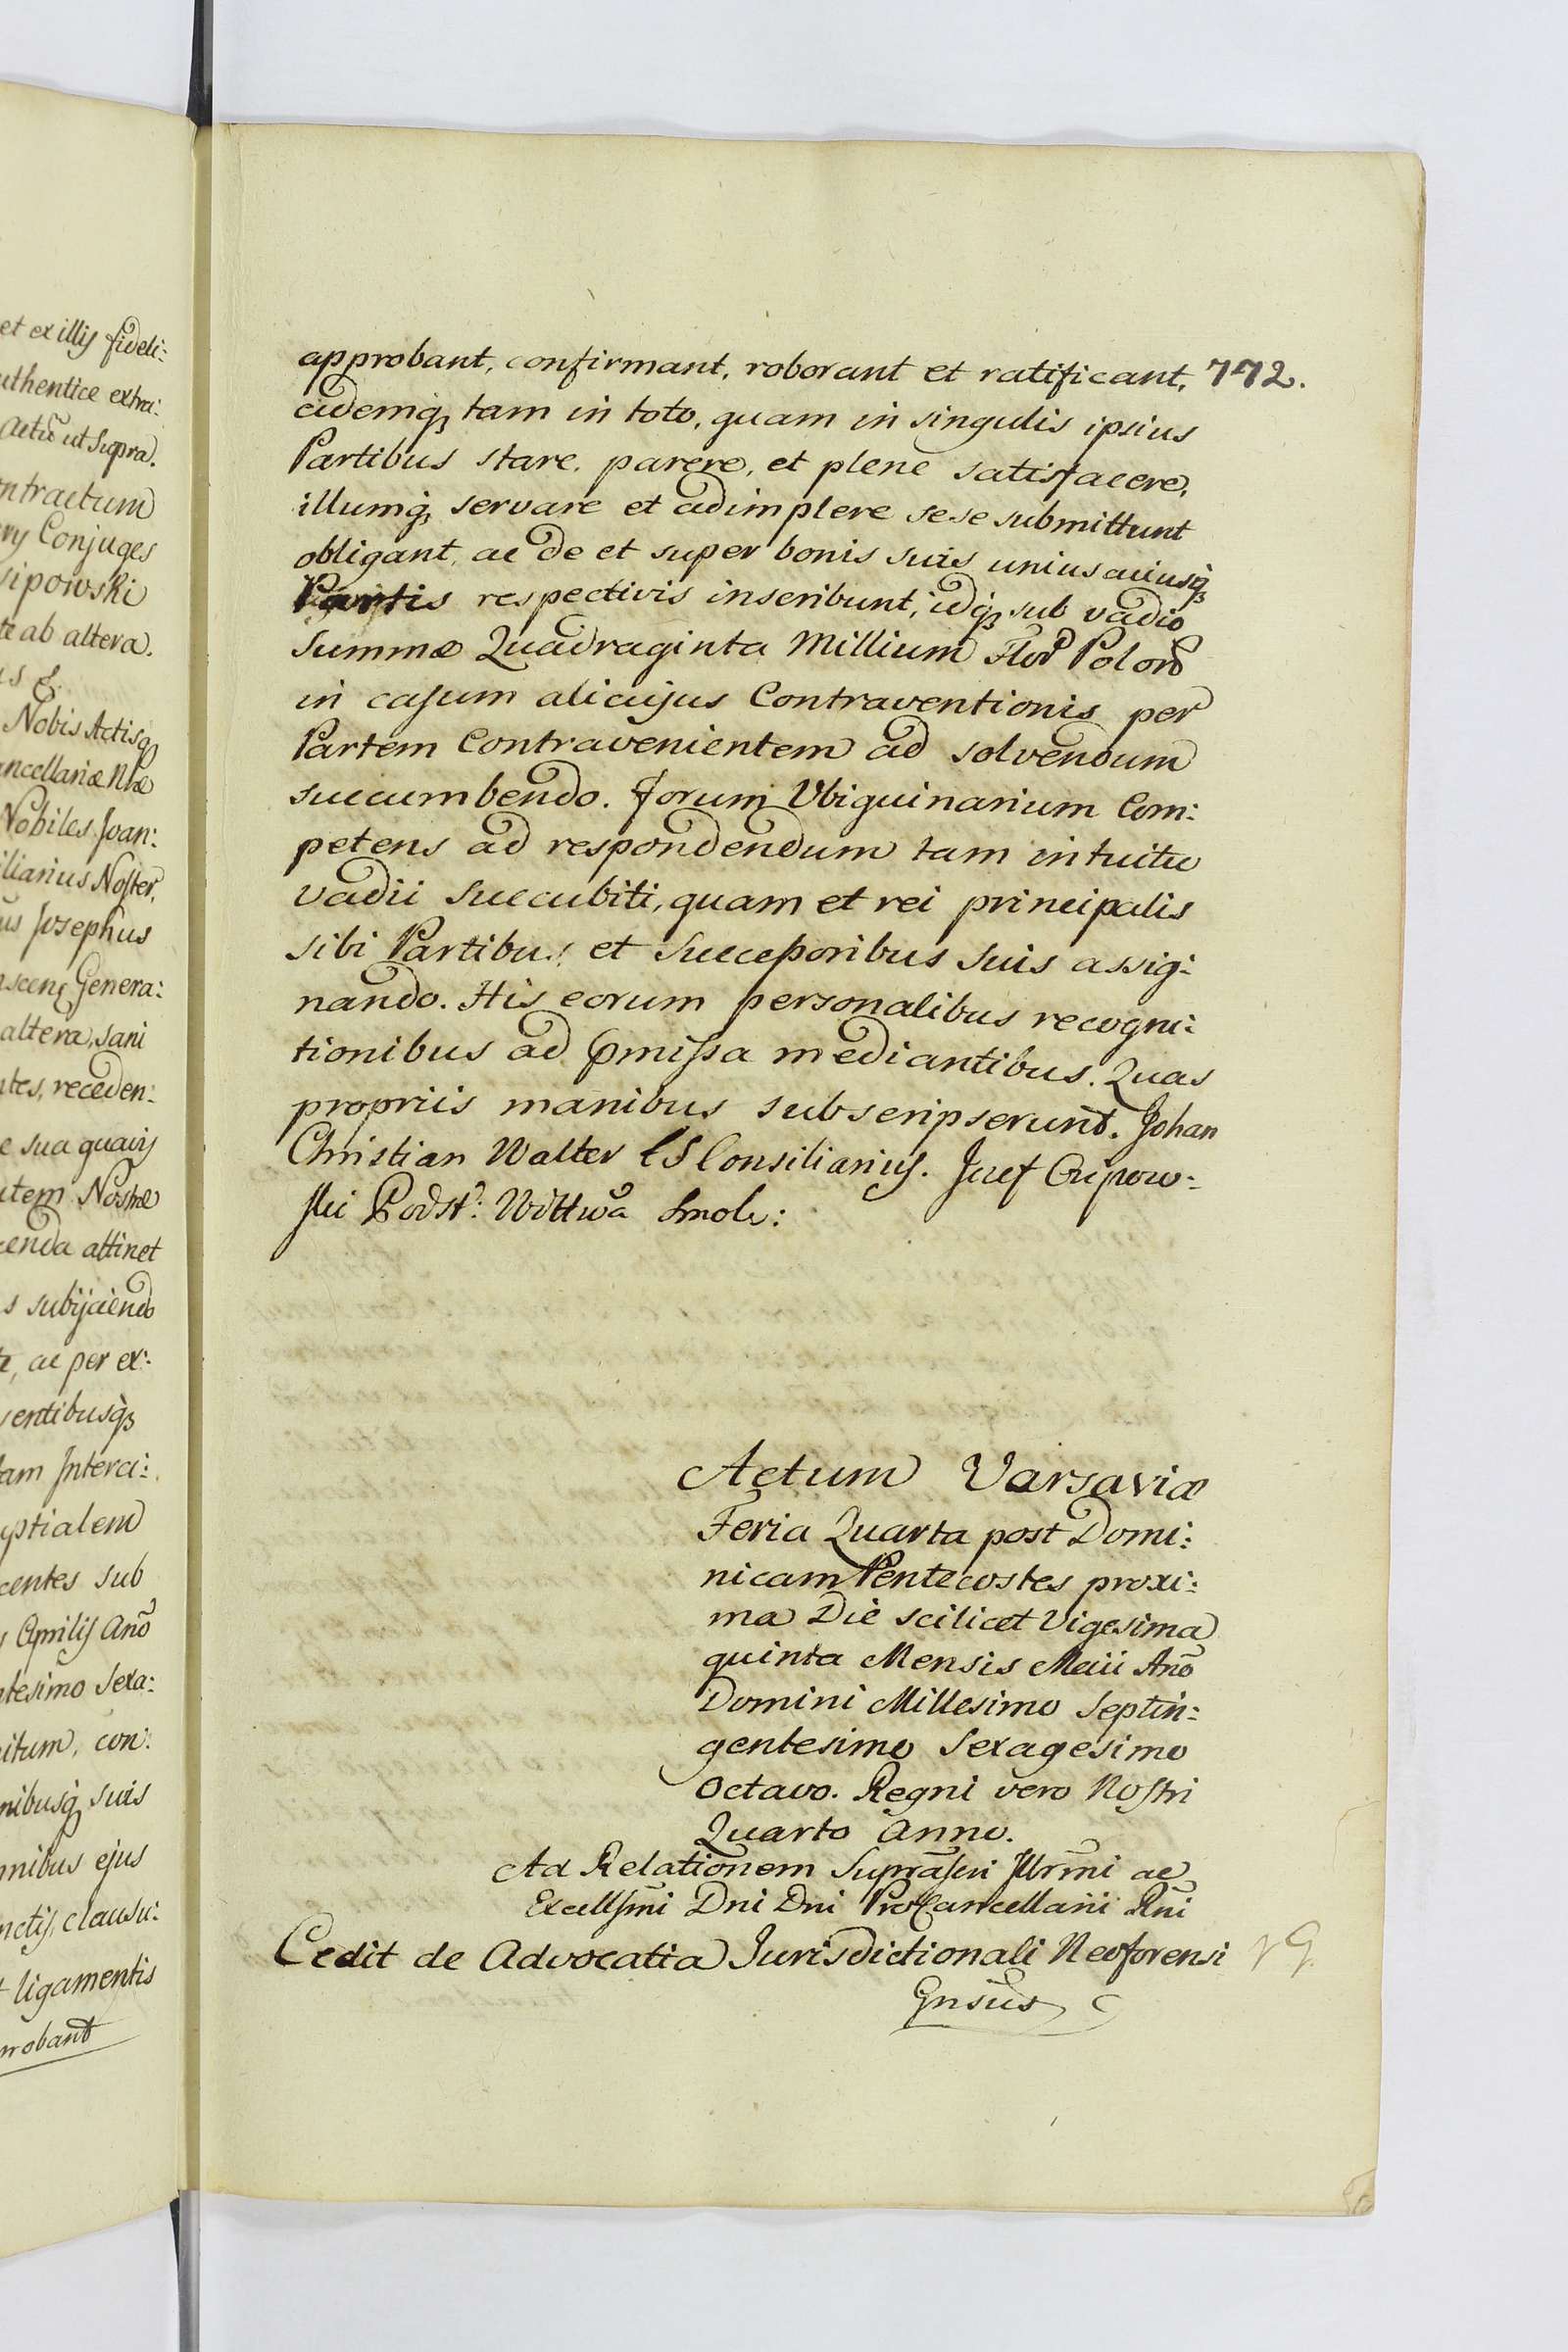 et ex illis fideli:
uthentice extra:
Actũ ut Supra.
ntractum
ry Conjuges
sipowski
te ab altera.
us &.
Nobis Actisq̢
ncellariæ Nræ
Nobiles Joan:
iliarius Noster,
us Josephus
Genera:
altera, sani
ntes, receden:
e sua quavis
utem Nostræ
cenda attinet
s subijciendo
te, ac per ex:
sentibusq̢
tam Interci:
uptialem
centes sub
s Aprilis Anõ
ntesimo Sexa:
itum, con:
nibusq̢ suis
mnibus ejus
nctis, clausu:
t ligamentis
probant
approbant, confirmant, roborant et ratificant, 772.
eidemq̢ tam in toto, quam in singulis ipsius
Partibus stare, parere, et plene satisfacere,
illumq̢ servare et adimplere sese submittunt
obligant, ac de et super bonis suis uniuscuiusq̢
Partis respectivis inscribunt, idq̢ sub vadio
Summæ Quadraginta Millium Flor̃ Polon̄
in casum alicujus Contraventionis per
Partem Contravenientem ad solvendum
succumbendo. Forum Ubiquinarium Com:
petens ad respondendum tam intuitu
vadii succubiti, quam et rei principalis
sibi Partibus et Successoribus suis assig:
nando. His eorum personalibus recogni:
tionibus ad p̃missa mediantibus. Quas
propriis manibus subscripserunt. Johan
Christian Walter LS Consiliarius. Jozef Osipow:
ski Podst: Wittwa Smole:
Actum Varsaviæ
Feria Quarta post Domi:
nicam Pentecostes proxi:
ma Die scilicet Vigesima
quinta Mensis Maii Anõ
Domini Millesimo Septin:
gentesimo Sexagesimo
Octavo. Regni vero Nostri
Quarto Anno.
Ad Relationem Suprãscri Illr̃mi ac
Excellsm̃i Dni Dni ProCancellarii Rni
Cedit de Advocatia Jurisdictionali Neoforensi
Gnsũs